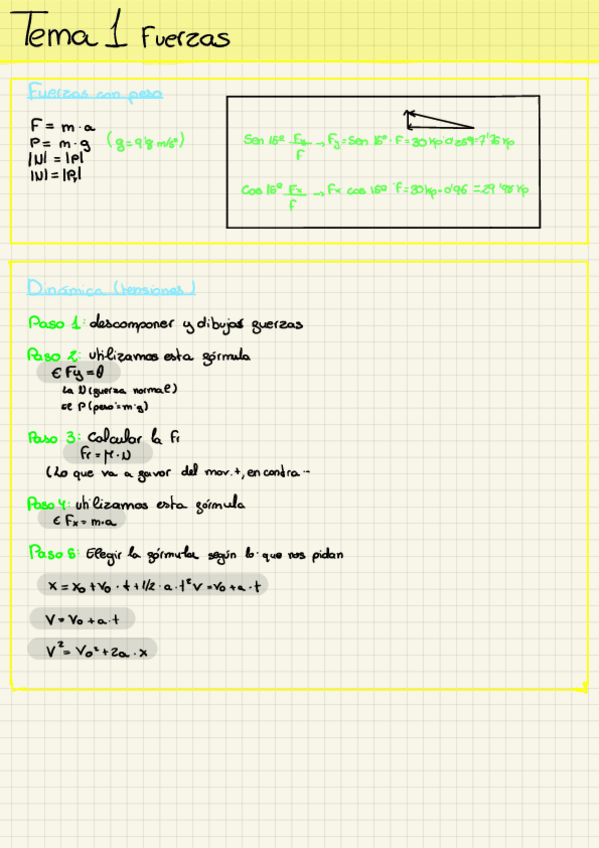 Tema 1 Fuerzas
Fuerzas con peso
F = m·a
P = m·g (g=9'8 m/s²)
|N| = |P|
|N| = |Py|
Sen 15º Fy/F → Fy = Sen 15º · F = 30 kp · 0'259 = 7'76 kp
Cos 15º Fx/F → Fx cos 15º · F = 30 kp · 0'96 = 29'98 kp
Dinámica (tensiones)
Paso 1: descomponer y dibujar fuerzas
Paso 2: utilizamos esta fórmula
Σ Fy = 0
La N (fuerza normal)
el P (peso = m·g)
Paso 3: Calcular la Fr
Fr = μ · N
(Lo que va a favor del mov. +, en contra -
Paso 4: utilizamos esta fórmula
Σ Fx = m·a
Paso 6: Elegir la fórmula según lo que nos pidan
x = x0 + v0 · t + 1/2 · a · t² v = v0 + a · t
V = V0 + a · t
V² = V0² + 2a · x